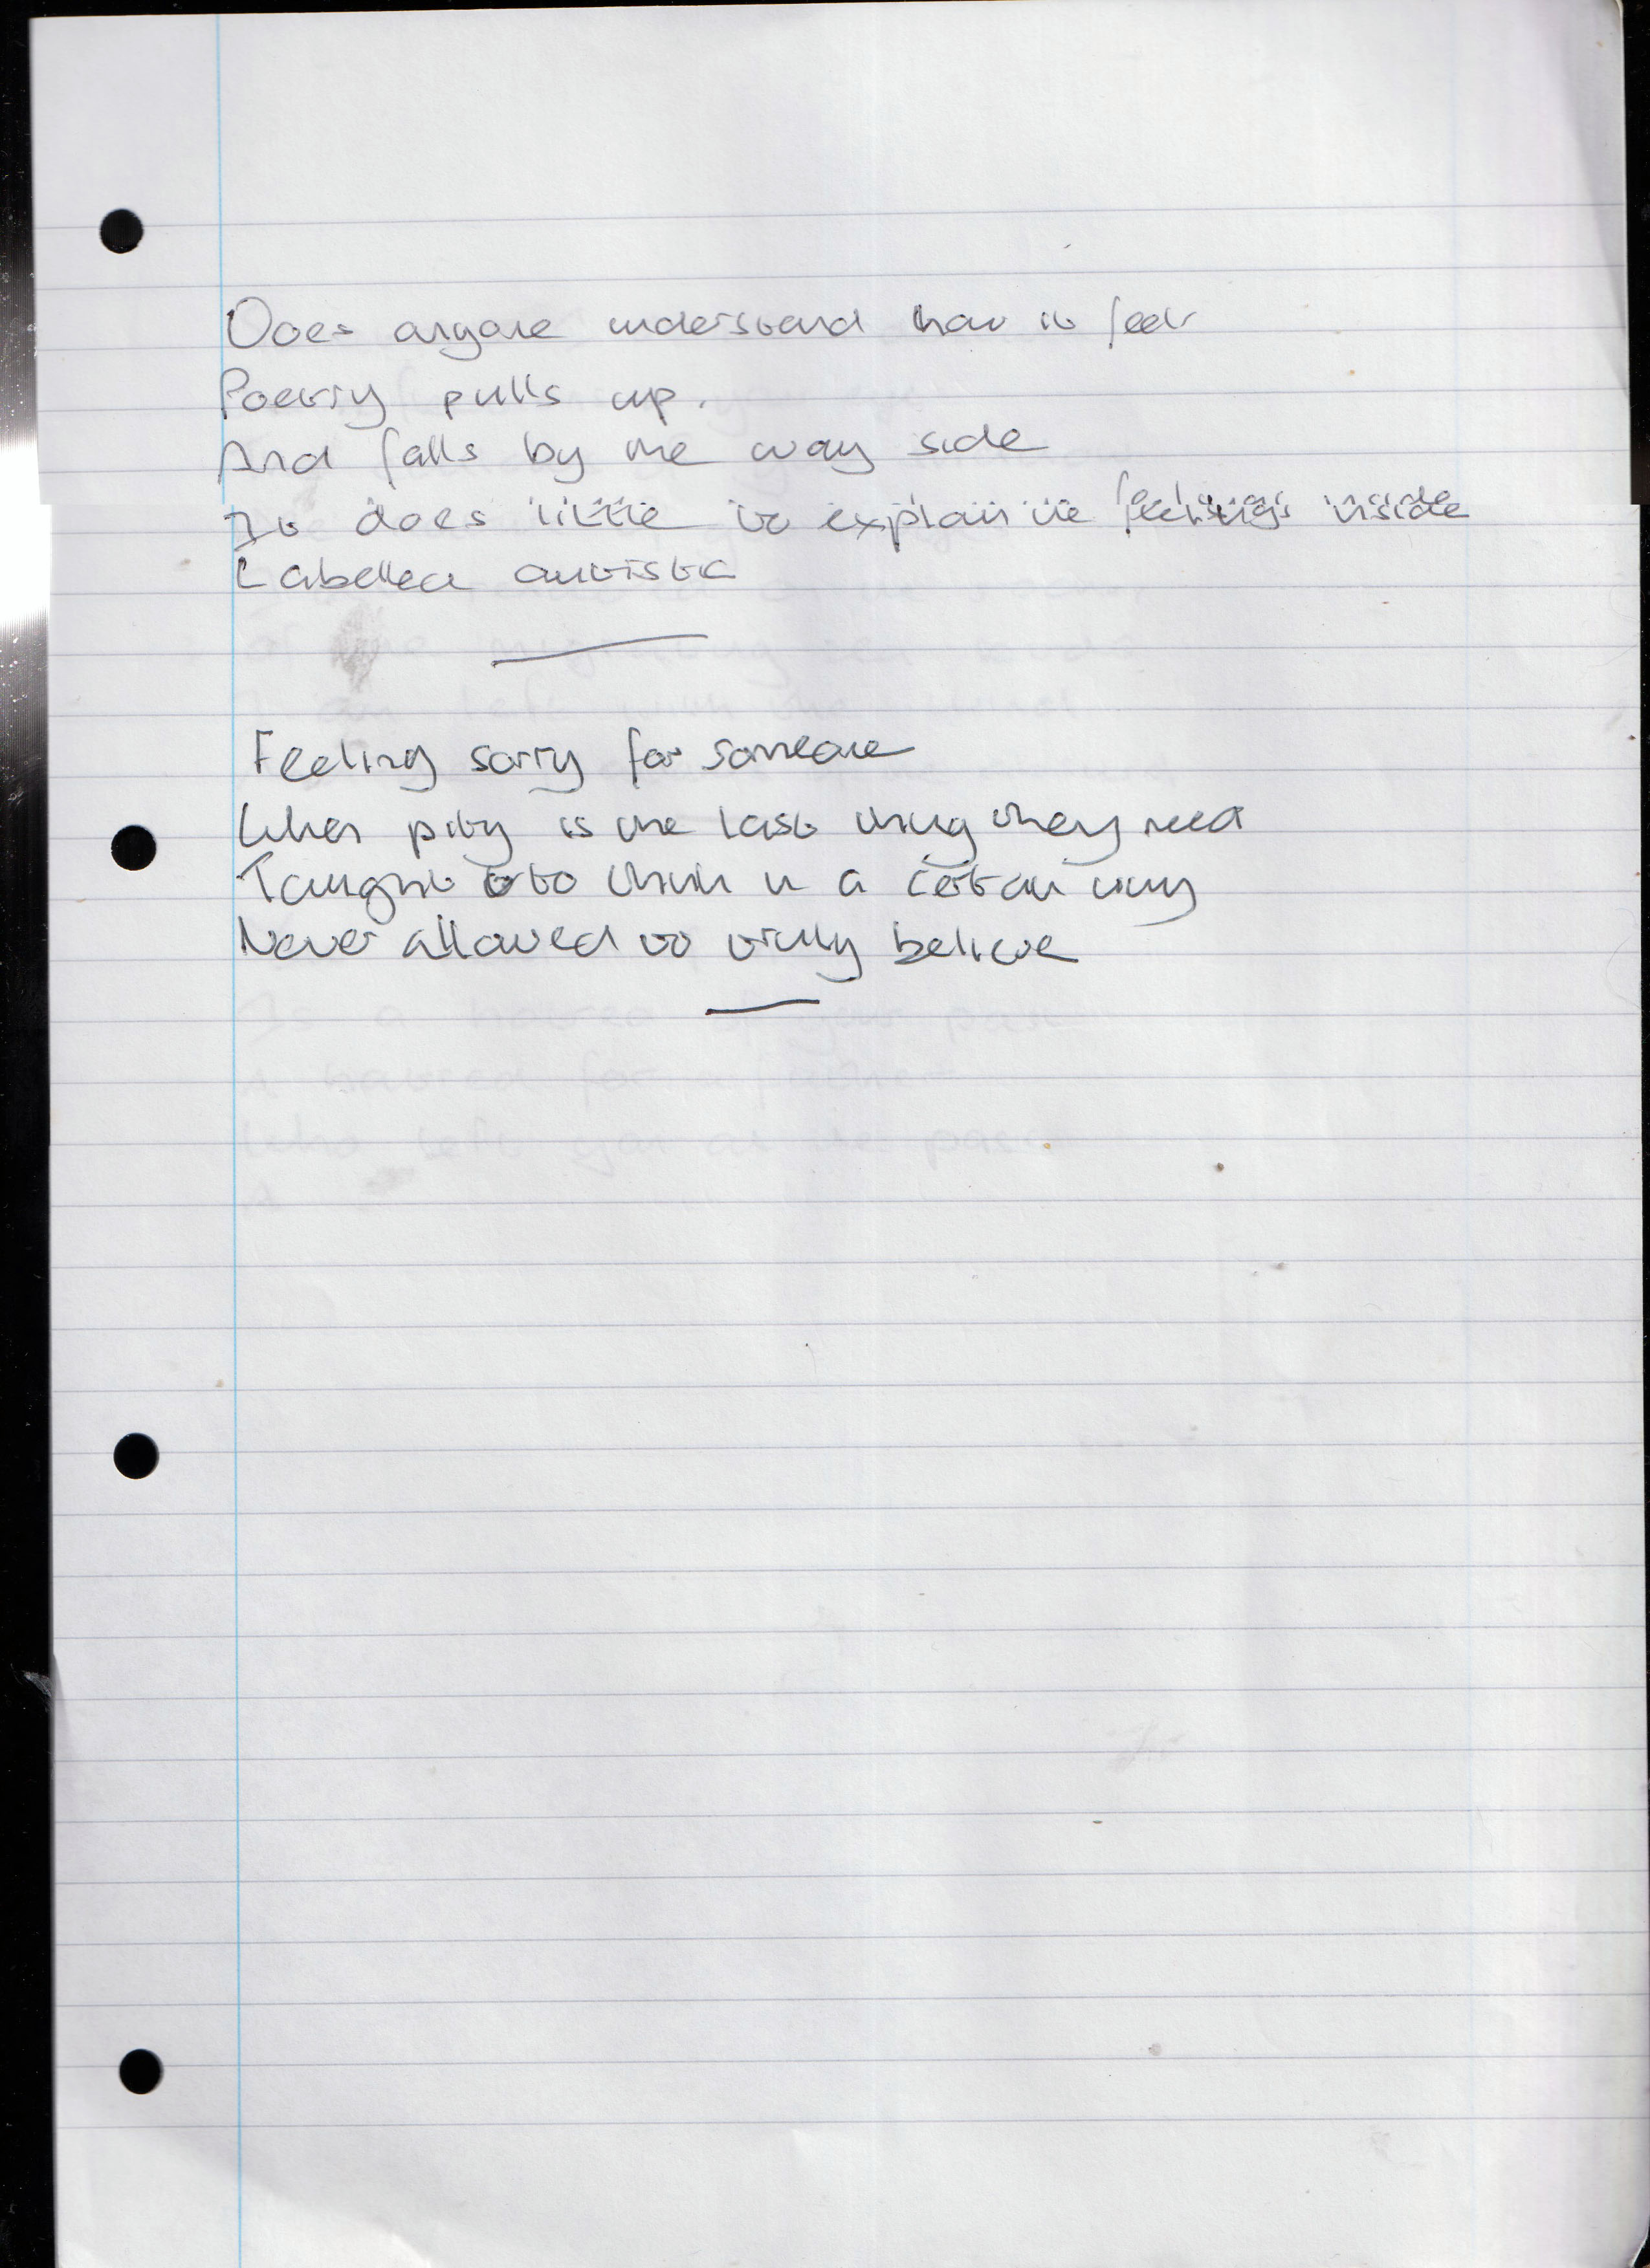 Does anyone understand how it feels
Poetry pulls up.
And falls by the way side
It does little to explain the feelings inside
Labelled autistic
Feeling sorry for someone
When pity is the last thing they need
Taught to think in a certain way
Never allowed to truly believe